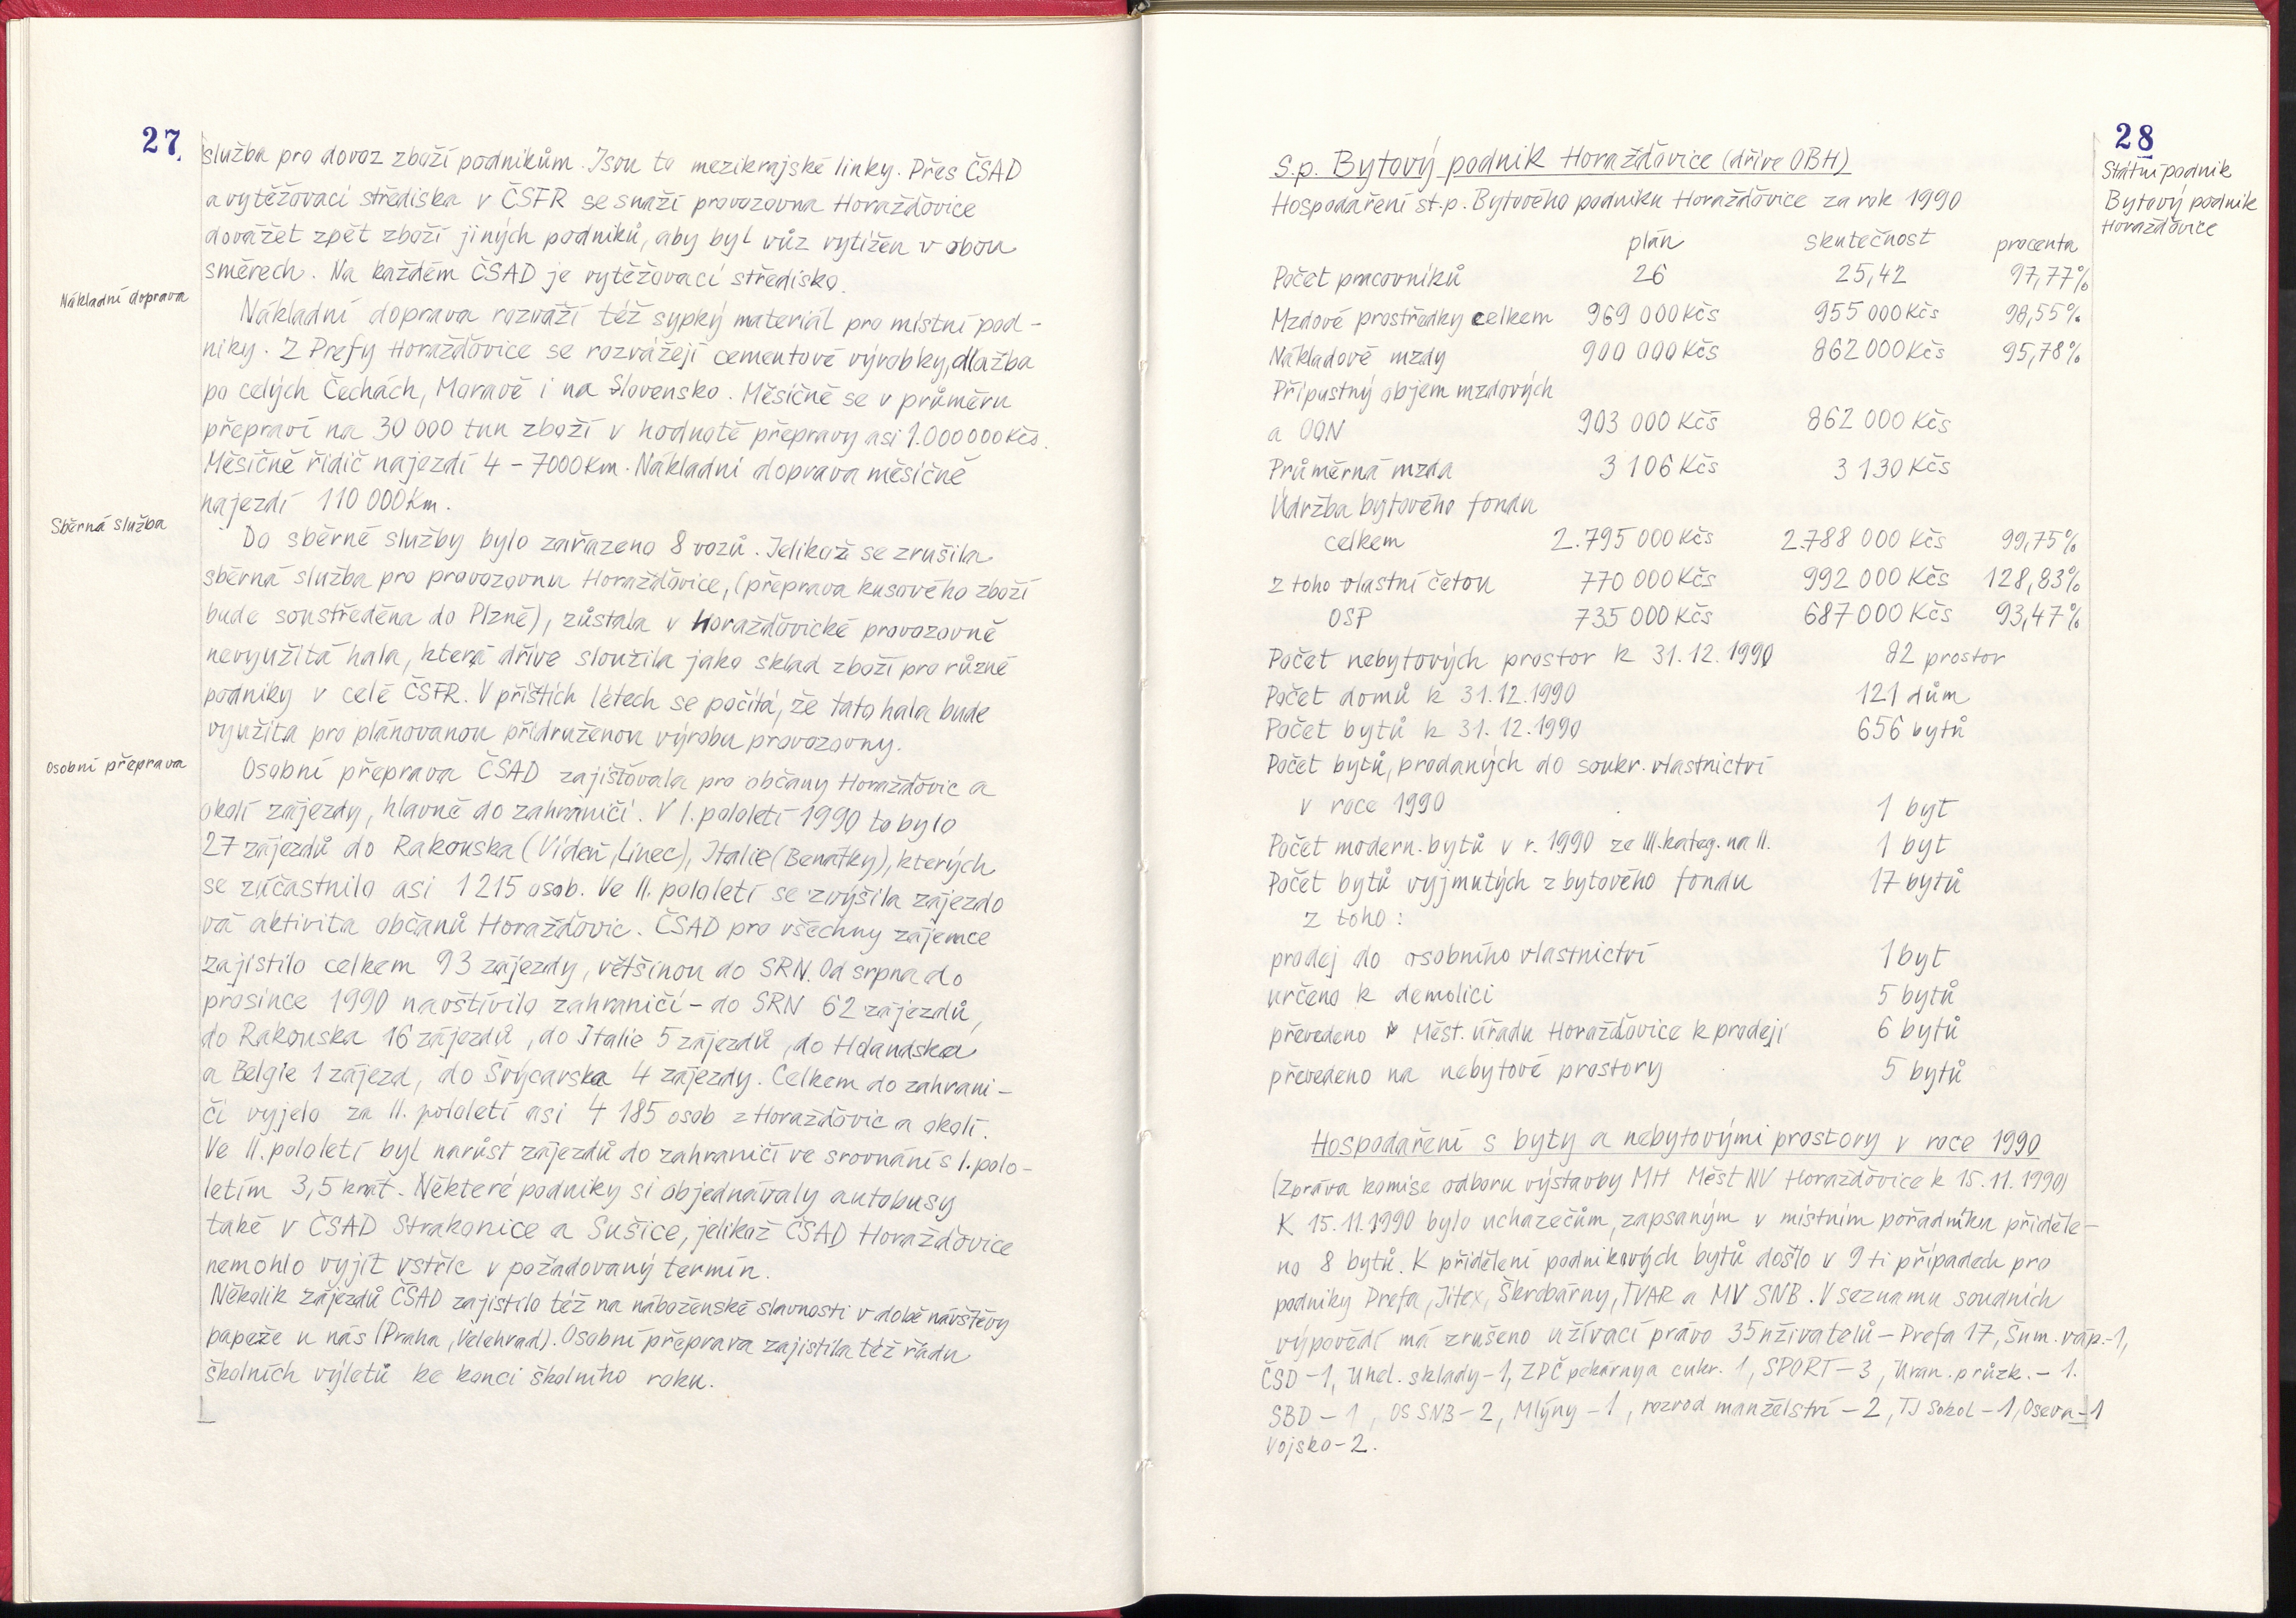 27.
služba pro dovoz zboží podnikům. Jsou to mezikrajské linky. Přes ČSAD
a vytěžovací střediska v ČSFR se snaží provozovna Horažďovice
dovážet zpět zboží jiných podniků, aby byl vůz vytížen v obou
směrech. Na každém ČSAD je vytěžovací středisko.
Nákladní doprava
Nákladní doprava rozváží též sypký materiál pro místní pod-
niky. Z Prefy Horažďovice se rozvážejí cementové výrobky, dlažba
po celých Čechách, Moravě i na Slovensko. Měsíčně se v průměru
přepraví na 30 000 tun zboží v hodnotě přepravy asi 1.000 000 Kčs.
Měsíčně řidič najezdí 4 - 7000 Km. Nákladní doprava měsíčně
najezdí 110 000 Km.
Sběrná služba
Do sběrné služby bylo zařazeno 8 vozů. Jelikož se zrušila
sběrná služba pro provozovnu Horažďovice, (přeprava kusového zboží
bude soustředěna do Plzně), zůstala v Horažďovické provozovně
nevyužitá hala, která dříve sloužila jako sklad zboží pro různé
podniky v celé ČSFR. V příštích létech se počítá, že tato hala bude
využita pro plánovanou přidruženou výrobu provozovny.
Osobní přeprava
Osobní přeprava ČSAD zajišťovala pro občany Horažďovic a
okolí zájezdy, hlavně do zahraničí. V I. pololetí 1990 to bylo
27 zájezdů do Rakouska (Vídeň, Linec), Italie (Benátky), kterých
se zúčastnilo asi 1 215 osob. Ve II. pololetí se zvýšila zájezdo
vá aktivita občanů Horažďovic. ČSAD pro všechny zájemce
zajistilo celkem 93 zájezdy, většinou do SRN. Od srpna do
prosince 1990 navštívilo zahraničí - do SRN 62 zájezdů,
do Rakouska 16 zájezdů, do Italie 5 zájezdů, do Holandska
a Belgie 1 zájezd, do Švýcarska 4 zájezdy. Celkem do zahrani-
čí vyjelo za II. pololetí asi 4 185 osob z Horažďovic a okolí.
Ve II. pololetí byl narůst zájezdů do zahraničí ve srovnání s I. polo-
letím 3,5 krát. Některé podniky si objednávaly autobusy
také v ČSAD Strakonice a Sušice, jelikož ČSAD Horažďovice
nemohlo vyjít vstříc v požadovaný termín.
Několik zájezdů ČSAD zajistilo též na náboženské slavnosti v době návštěvy
papeže u nás (Praha, Velehrad). Osobní přeprava zajistila též řadu
školních výletů ke konci školního roku.
28
Státní podnik
Bytový podnik
Horažďovice
s.p. Bytový podnik Horažďovice (dříve OBH)
Hospodaření st.p. Bytového podniku Horažďovice za rok 1990
plán skutečnost procenta
Počet pracovníků 26 25,42 97,77%
Mzdové prostředky celkem 969 000 Kčs 955 000 Kčs 98,55%
Nákladové mzdy 900 000 Kčs 862 000 Kčs 95,78%
Přípustný objem mzdových
a OON 903 000 Kčs 862 000 Kčs
Průměrná mzda 3 106 Kčs 3 130 Kčs
Údržba bytového fondu
celkem 2.795 000 Kčs 2.788 000 Kčs 99,75%
z toho vlastní četou 770 000 Kčs 992 000 Kčs 128,83%
OSP 735 000 Kčs 687 000 Kčs 93,47%
Počet nebytových prostor k 31.12.1990 82 prostor
Počet domů k 31.12.1990 121 dům
Počet bytů k 31.12.1990 656 bytů
Počet bytů, prodaných do soukr. vlastnictví
v roce 1990 1 byt
Počet modern. bytů v r. 1990 ze III. kateg. na II. 1 byt
Počet bytů vyjmutých z bytového fondu 17 bytů
z toho:
prodej do osobního vlastnictví 1 byt
určeno k demolici 5 bytů
převedeno Měst. úřadu Horažďovice k prodeji 6 bytů
převedeno na nebytové prostory 5 bytů
Hospodaření s byty a nebytovými prostory v roce 1990
(Zpráva komise odboru výstavby MH Měst NV Horažďovice k 15.11.1990)
K 15.11.1990 bylo uchazečům, zapsaným v místním pořadníku přiděle-
no 8 bytů. K přidělení podnikových bytů došlo v 9 ti případech pro
podniky Prefa, Jitex, Škrobárny, TVAR a MV SNB. V seznamu soudních
výpovědí má zrušeno užívací právo 35 uživatelů - Prefa 17, Šum. váp.-1,
ČSD-1, Uhel. sklady-1, ZPČ pekárny a cukr. 1, SPORT-3, Uran. průzk. - 1.
SBD - 1, OS SNB-2, Mlýny - 1, rozvod manželství - 2, TJ Sokol - 1, Oseva-1
Vojsko-2.